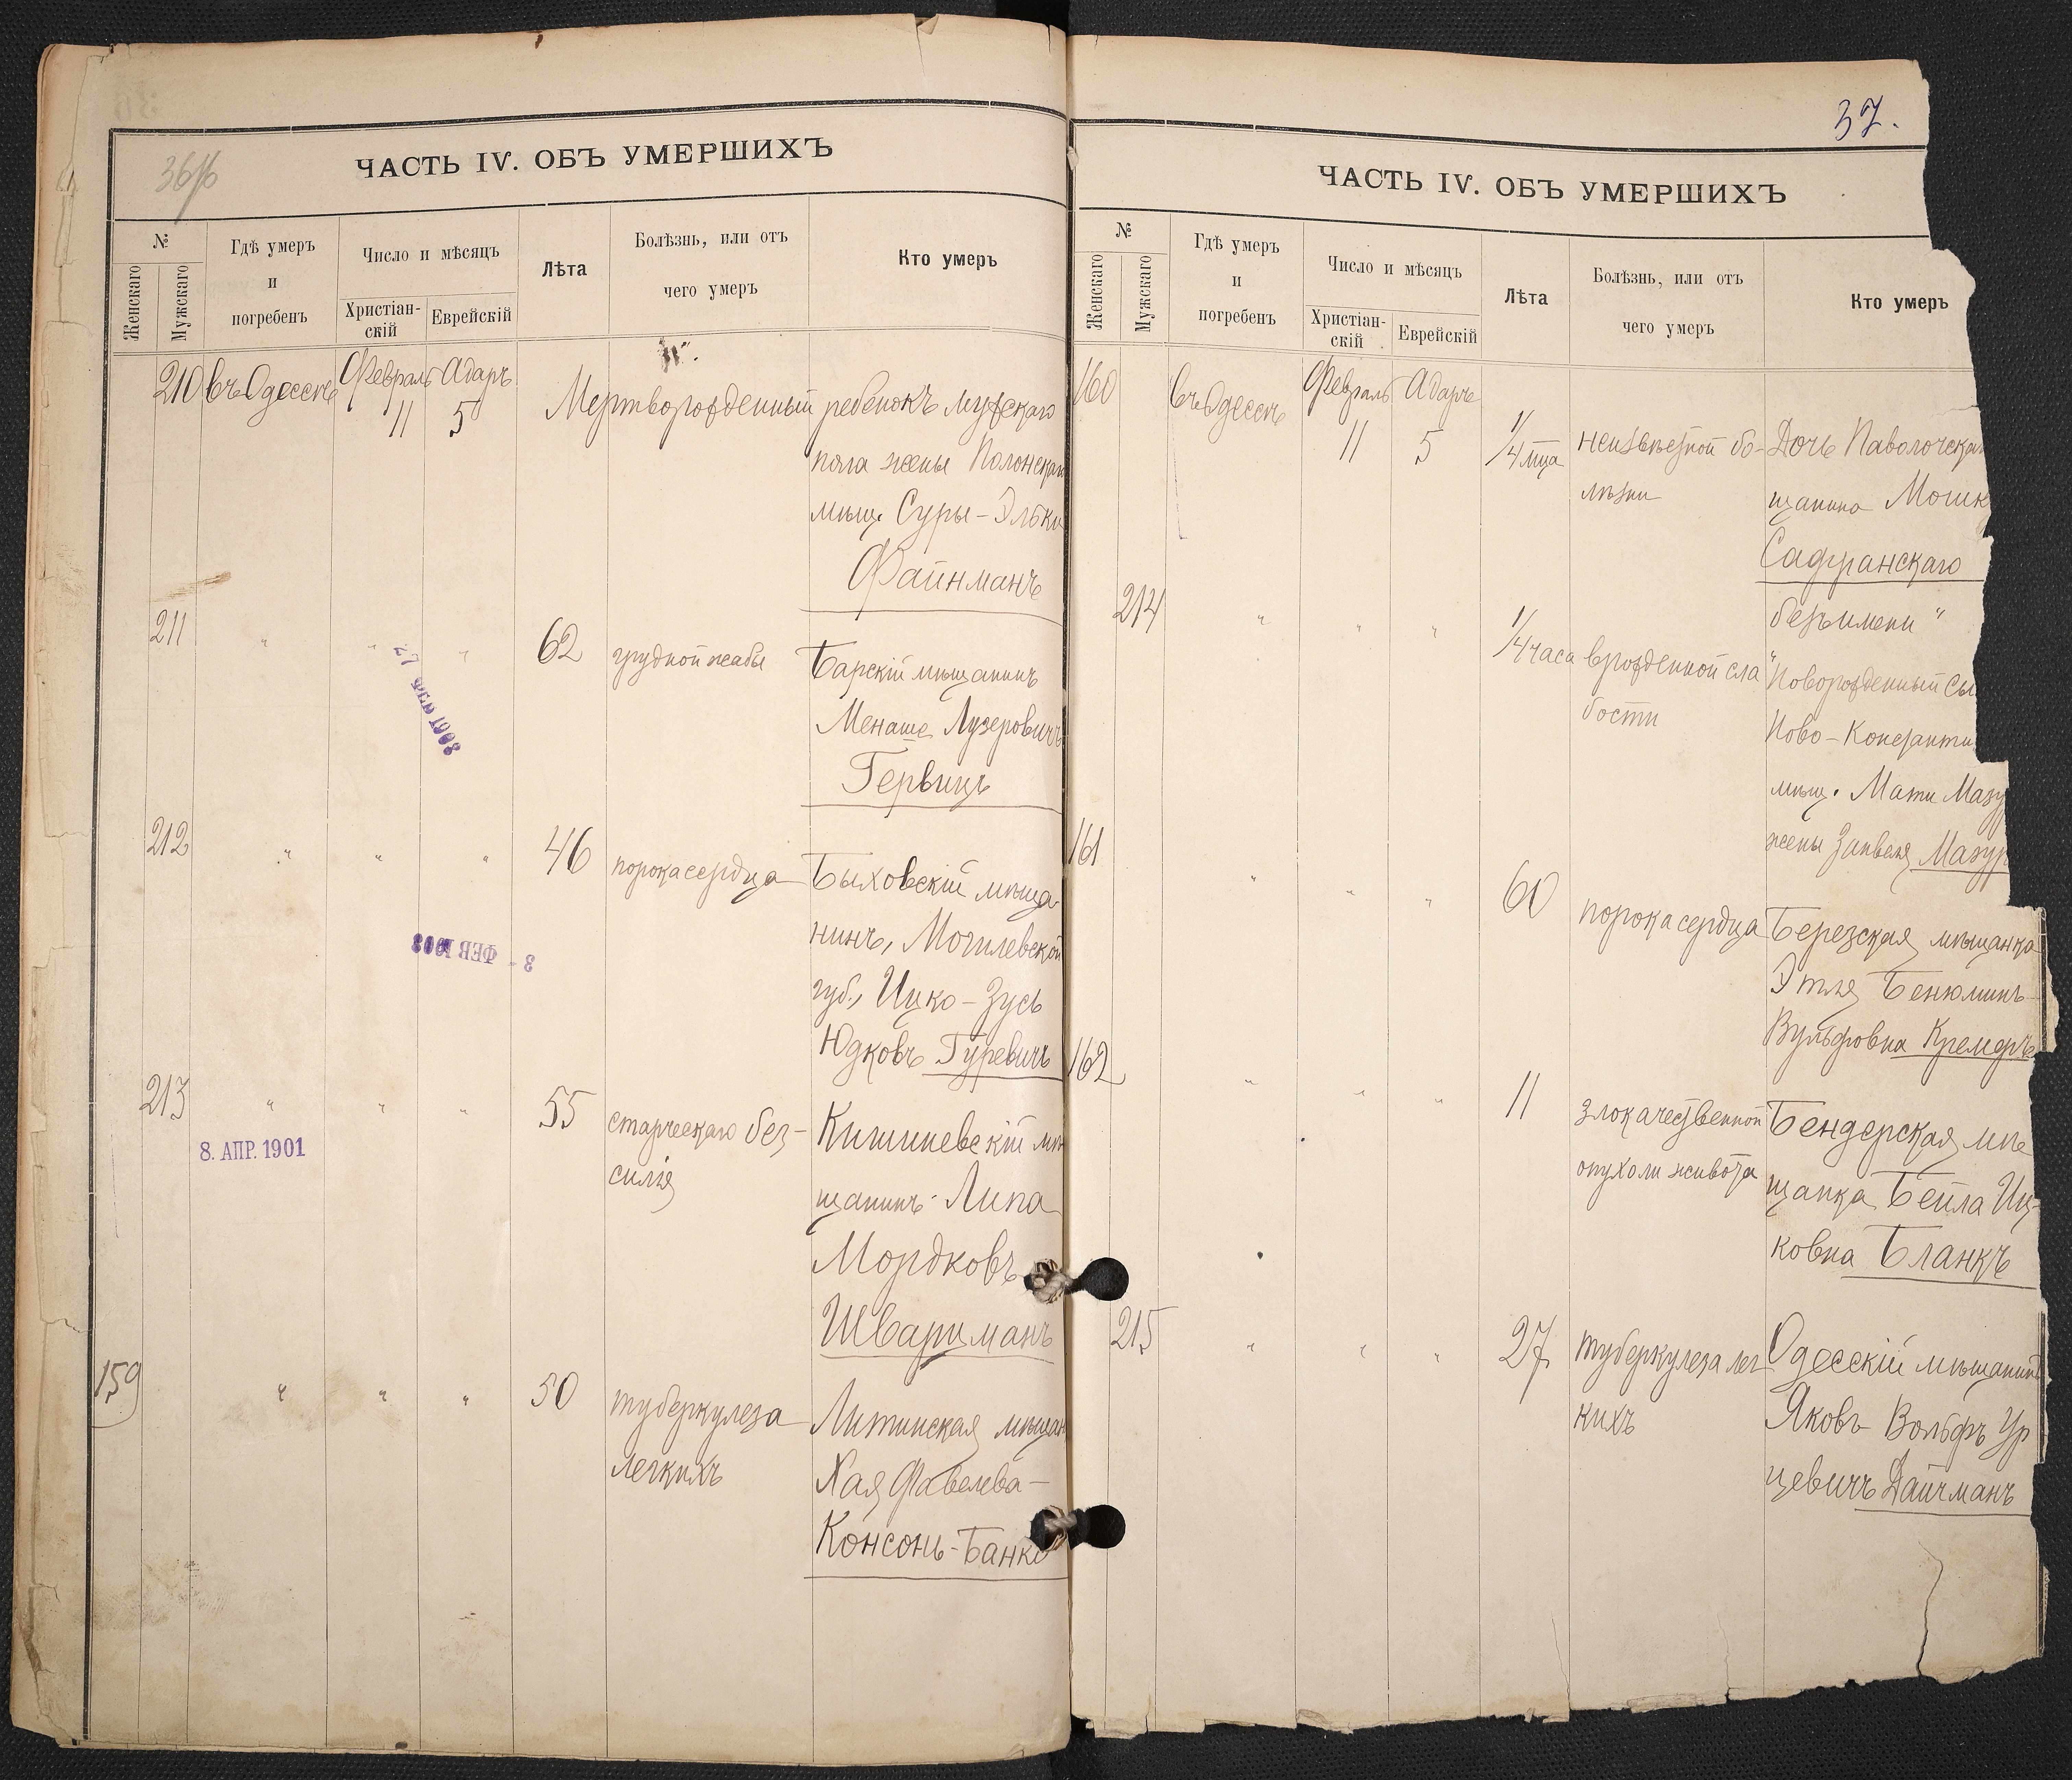 36/б
ЧАСТЬ IV. ОБЪ УМЕРШИХЪ
№
Женскаго
Мужскаго
Гдѣ умеръ
и
погребенъ
Число и мѣсяцъ
Христіан-
скій
Еврейскій
Лѣта
Болѣзнь, или отъ
чего умеръ
Кто умеръ
210 въ Одессѣ Февраль Адаръ
11 5 Мертворожденный ребенокъ мужскаго
пола жены Полонскаго
мѣщ. Суры-Эльки
Файнманъ
211 " " " 62 грудной жабы Барскій мѣщанинъ
Менаше Лузеровичъ
Гервицъ
1903
212 " " " 46 порока сердца Быховскій мѣща-
нинъ, Могилевской
губ., Ицко-Зусь
Юдковъ Гуревичъ
3 - ФЕВ 1903
213 " " " 55 старческаго без-
силія
Кишиневскій мѣ
щанинъ Липа
Мордковъ
Шварцманъ
8. АПР. 1901
159 " " " 50 туберкулеза
легкихъ
Литинская мѣщан
Хая Фавелева
Консонъ-Банко
37.
ЧАСТЬ IV. ОБЪ УМЕРШИХЪ
№
Женскаго
Мужскаго
Гдѣ умеръ
и
погребенъ
Число и мѣсяцъ
Христіан-
скій
Еврейскій
Лѣта
Болѣзнь, или отъ
чего умеръ
Кто умеръ
160 въ Одессѣ Февраль Адаръ
11 5 1/4 мца неизвѣстной бо-
лѣзни
Дочь Паволочска
щанина Мошк
Садранскаго
безъ имени "
214 " " " 1/4 часа врожденной сла
бости
Новорожденный сы
Ново-Константи
мѣщ. Мати Мазу
жены Занвеля Мазур
161 " " " 60 порока сердца Березская мѣщанка
Этля Бенюминъ-
Вульфовна Кремеръ
162 " " " 11 злокачественной
опухоли живота
Бендерская мѣ
щанка Бейла Иц-
ковна Бланкъ
215 " " " 27 туберкулеза лег
кихъ
Одесскій мѣщанинъ
Яковъ Вольфъ Ур
цевичъ Дайчманъ